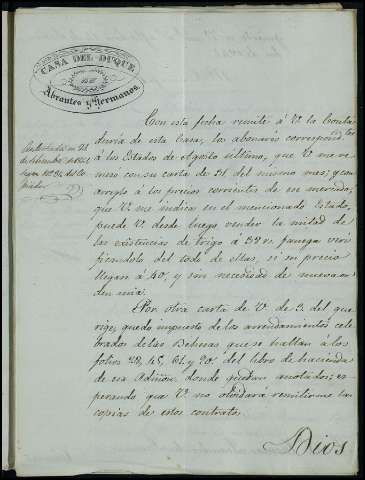 CASA DEL DUQUE
DE
Abrantes y Hermanos.
Con esta fecha remite á V. la Conta
duria de esta Casa, los abonarés correspond.tes
á los Estados de Agosto último, que V. me re
meso con su carta de 31 del mismo mes; y con
arreglo á los precios corrientes de su mercado,
que V. me indica en el mencionado Estado,
puede V. desde luego vender la mitad de
las existencias de trigo á 38 r.s fanega veri
ficandolo del todo de ellas, si su precio
llegan á 40, y sin necesidad de nueva or
den mia.
Por otra carta de V. de 3. del que
rige, quedo impuesto de los arrendamientos cele
brados de las Dehesas que se hallan á los
folios 28, 45, 61 y 90 del libro de hacienda
de esa Admon, donde quedan anotados; es
perando que V. no olvidará remitirme las
copias de estos contratos.
Dios